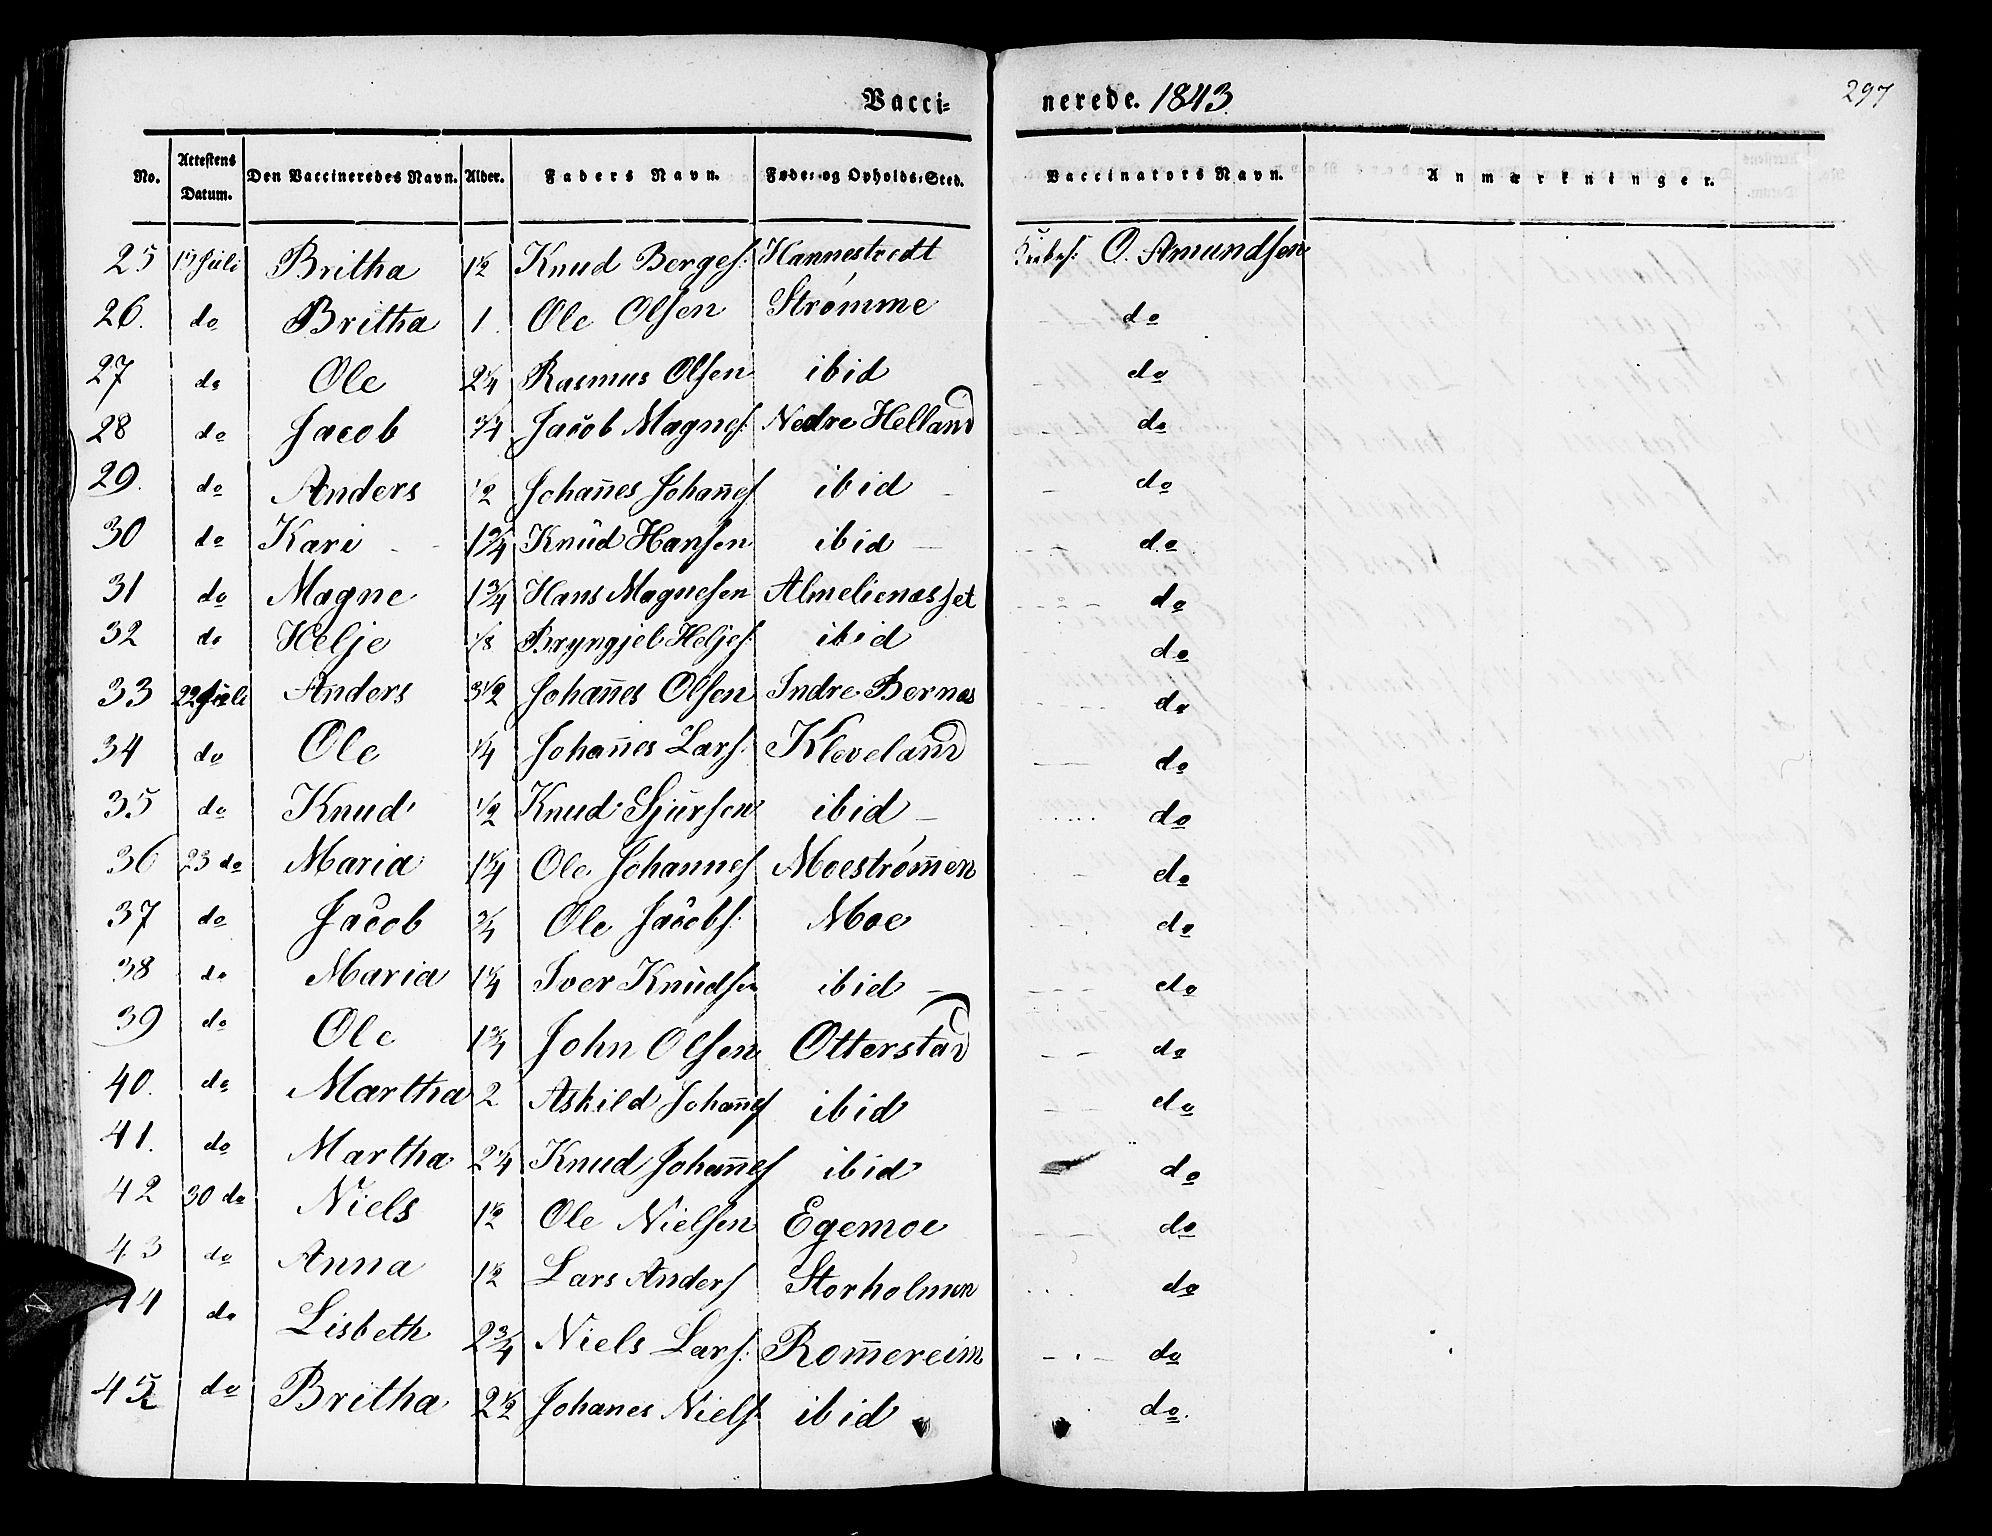 Vacci= nerede. 1843. 297
No. Attestens Datum. Den Vaccineredes Navn. Alder. Faders Navn. Føde- og Opholds-Sted. Vaccinators Navn. Anmærkninger.
25 Juli Britha 1 1/2 Knud Bergeſ: Hannestredt O. Amundſen
26. do Britha 1. Ole Olſen Strømme do
27 do Ole 2 1/4 Rasmus Olſen ibid do
28 do Jacob 3/4 Jacob Magneſ: Nedre Helland do
29. do Anders 1/2 Johan̄es Johan̄eſ ibid do
30 do Kari 1 3/4 Knud Hanſen ibid do
31 do Magne 1 3/4 Hans Magneſen Almelienæsſet do
32 do Helje 1/8 Bryngjel Heljeſ: ibid do
33 22 Juli Anders 3 1/2 Johan̄es Olſen Indre Bernæs do
34 do Ole 1/4 Johan̄es Larſ: Kleveland do
35 do Knud 1/2 Knud Sjurſen ibid do
36 23 do Maria 1 1/4 Ole Johanneſ Moestrøm̄en do
37 do Jacob 3/4 Ole Jacobſ: Moe do
38 do Maria 1 1/4 Iver Knudſen ibid do
39 do Ole 1 3/4 John Olſen Otterstad do
40. do Martha 2 Askild Johan̄eſ ibid do
41. do Martha 2 1/4 Knud Johan̄eſ ibid do
42 30 do Niels 1 1/2 Ole Nielſen Egemoe do
43 do Anna 1 1/2 Lars Anderſ Storholmen do
44 do Lisbeth 2 3/4 Niels Larſ: Rom̄ereim do
45 do Britha 2 1/2 Johanes Nielſ: ibid do.